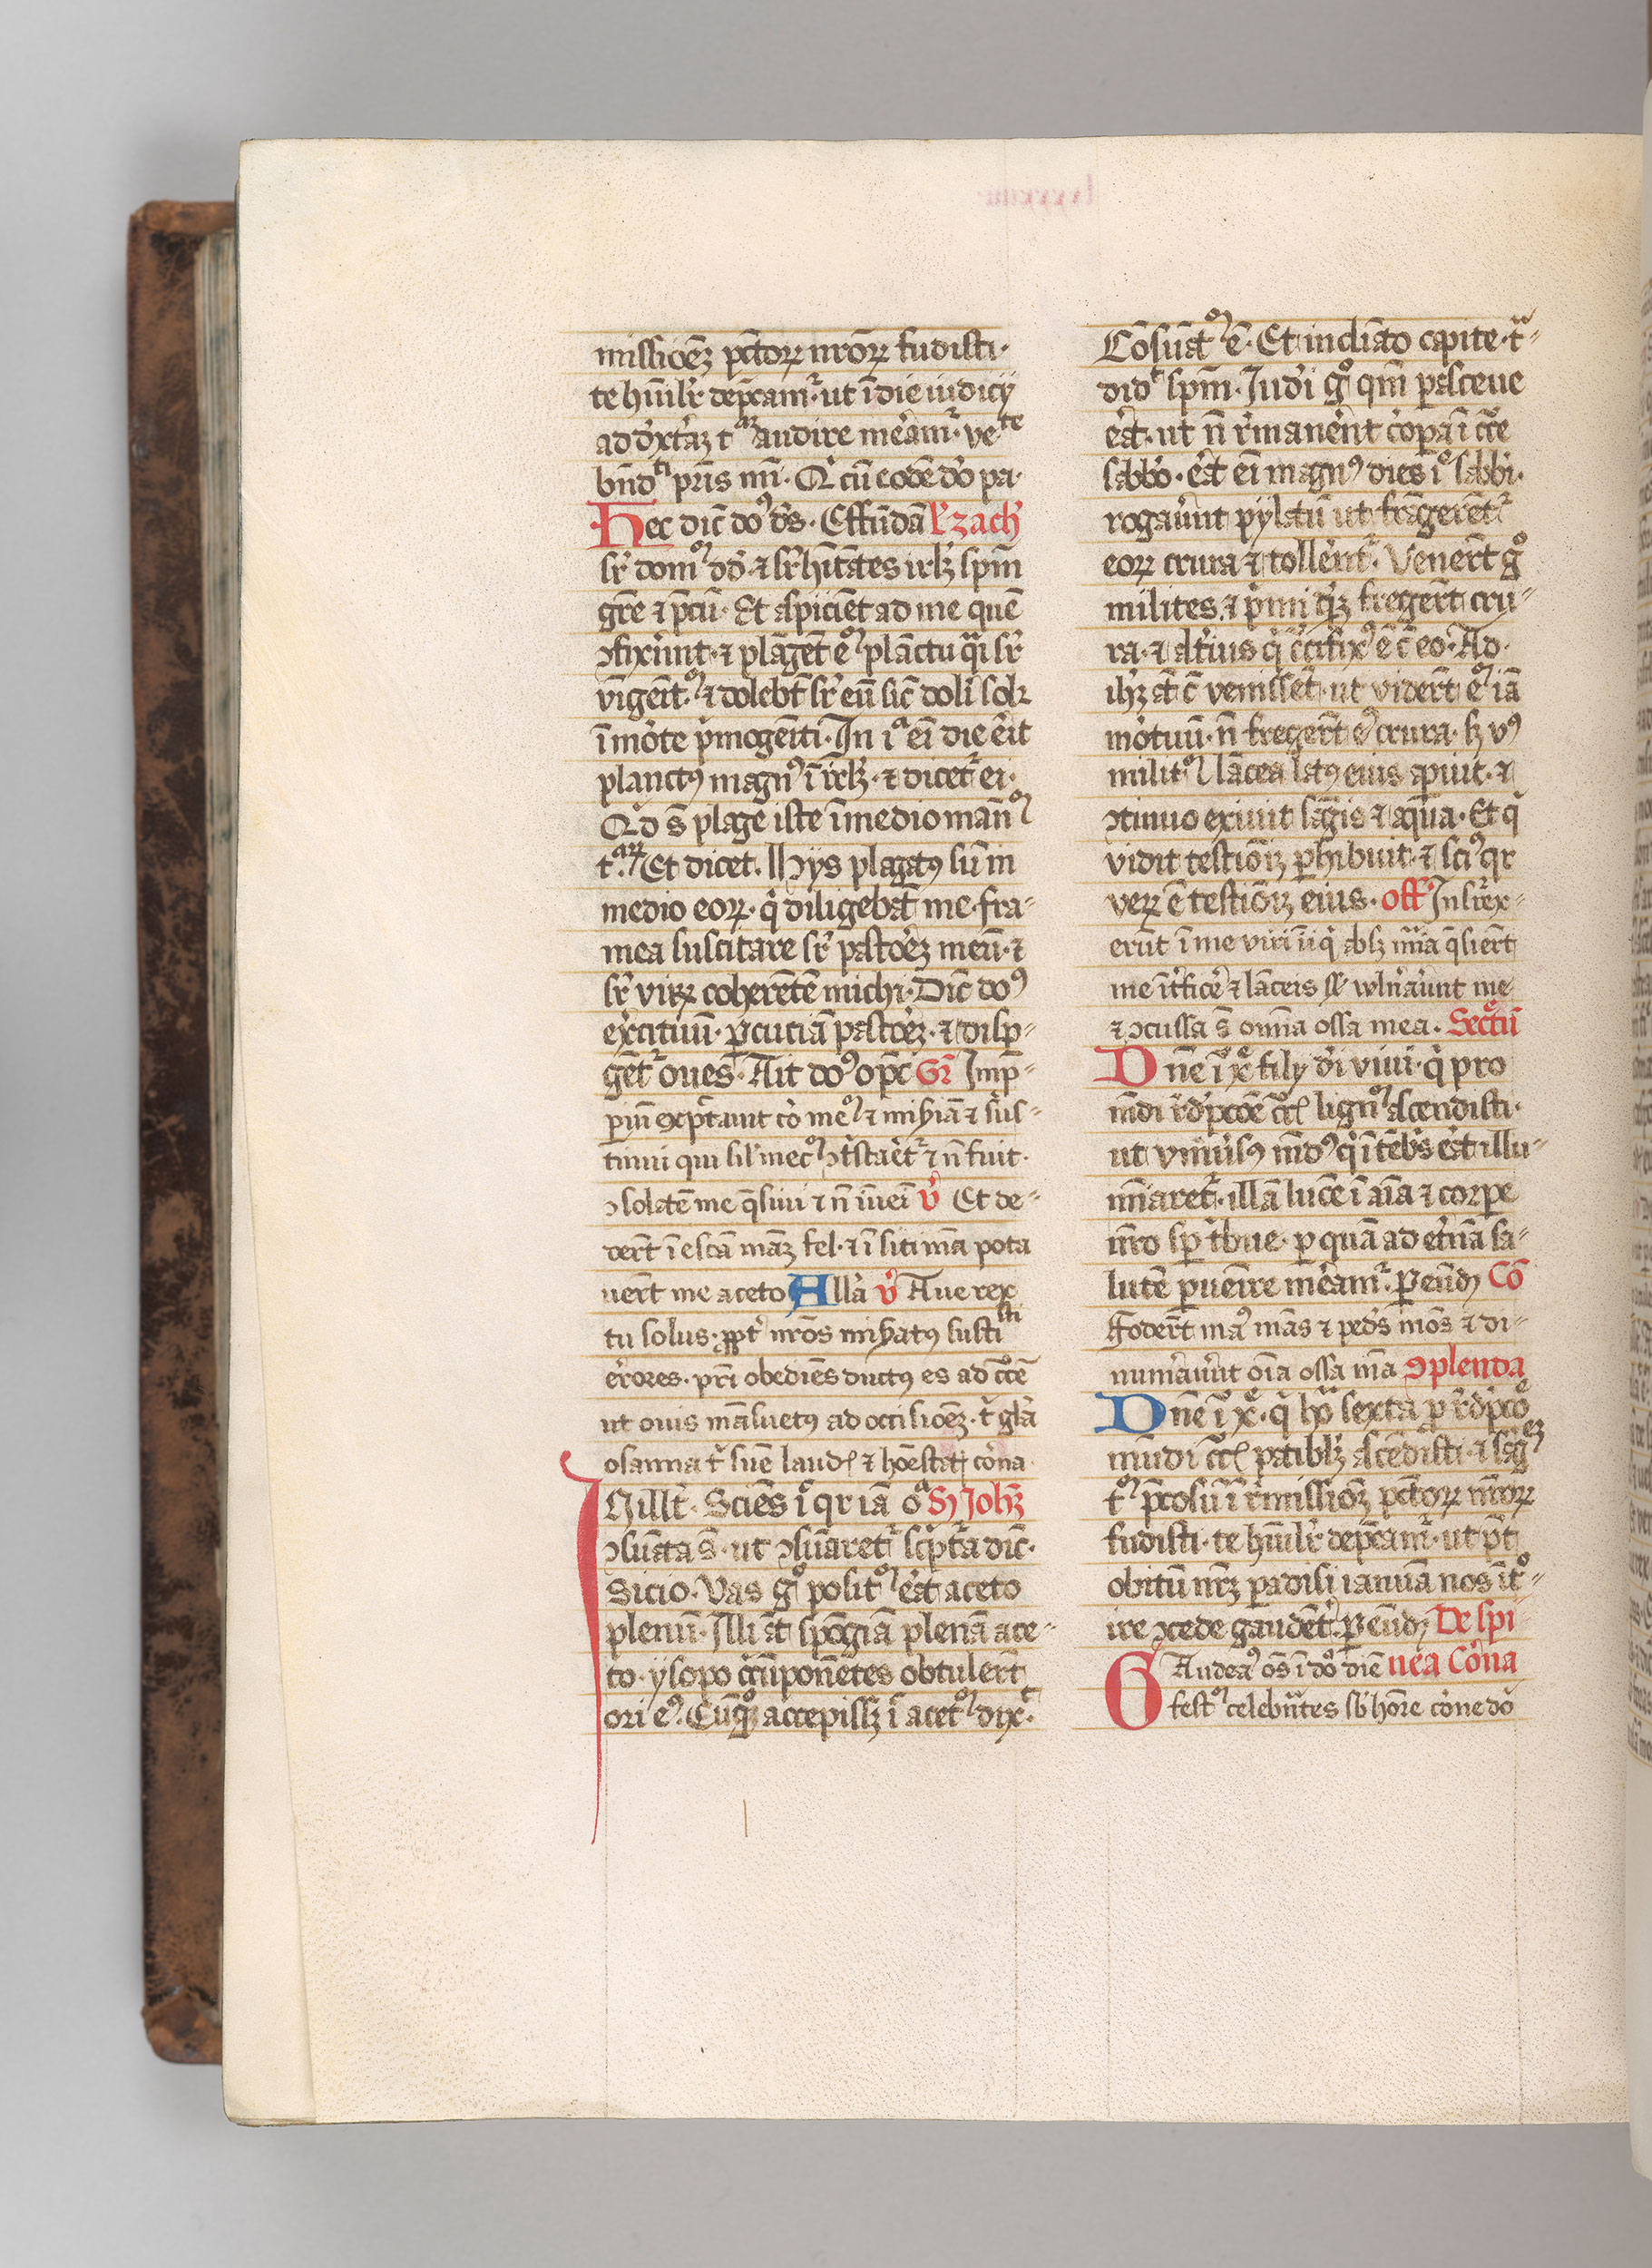 missioēꝫ pctorꝝ nrōrꝝ fudisti·
te hūilr̄ dep̄camr̄· ut ī die iudicij
ad dxt'aꝫ tuaꝫ audire me'amr̄· veīte
bn̄dti pr̄is mei. Q' cū eodē dō pa·
Hec dic̄ doꝰ dȝs· Effundā Lꝰ zach'
sr̄ domū dd̄ ⁊ sr̄ hītātes irl'ꝫ spm̄
gr̄e ⁊ p̄cū· Et aspiciēt ad me quē
ꝯfixer̄nt· ⁊ plāgēt eū plāctu qͣi sr̄
vnīgenit̄ū ⁊ dolebt̄ sr̄ eū sic̄ doli solꝫ
ī mo'te p'mogeīti· In iͣ eī die er̄it
planctꝰ magnꝰ ī irl'ꝫ· ⁊ dicet̄ ei·
Qd̄ s̄ plage iste ī medio manuū
tuarꝝ· Et dicet. Hijs plagatꝰ sū in
medio eorꝝ· q' diligebāt me· fra-
mea suscitare sr̄ pastoēꝫ meū· ⁊
sr̄ virꝝ coherētē michi· Dic̄ doꝰ
exercituū· ꝑcutiā pastoēꝫ· ⁊ disp-
gēt̄ oues· Ait doꝰ op̄c Gr̄ Imp̄-
ꝑiū exp̄tauit co' meū ⁊ mis'iā ⁊ sus-
tinui qui sil' mecū ꝯt'staēt̄ ⁊ n̄ fuit·
ꝯsolātē me q̄siui ⁊ n̄ iūei v̄ Et de-
dert̄ ī escā mēaꝫ fel· ⁊ ī siti mēa pota
uert̄ me aceto All'a v̄ Aue rex
tu solus· ꝓpt' nrōs mis'atꝰ susti sti
er'ores· pr̄i obediēs ductꝰ es ad cͦcē
ut ouis māsuetꝰ ad occisioēꝫ· t' gl'a
osanna t' sūe laudꝭ ⁊ hōestatꝭ co'na
In illt̄· Sciēs īc qr iā oīa S' Joh'ꝫ
ꝯsūata s̄· ut ꝯsūaret̄ sc'pt'a dic̄·
Sicio· Vas gͦ positū e'at aceto
plenū· Illi at̄ spōgiā plenā ace-
to· ysopo c'cūponētes obtulert̄
ori eiꝰ· Cū gͦ accepissꝫ īc acetū dix̄t·
Cōsūatū ē· Et inclīato capite· tͣ-
didt spm̄· Iudi gͦ qm̄ pasceue
e'at· ut n̄ r'manert̄ co'pa ī c'ce
sabb'o· e'at eī magnꝰ dies iͤ sabbi·
rogauert̄ pylatū ut frāgerēt̄
eorꝝ crura ⁊ tollert̄· Venert̄ gͦ
milites· ⁊ p'mi q'dꝫ fregert̄ cru-
ra· ⁊ alt'ius q' c'cifixꝰ ē c̄ eo· Ad·
ih'ꝫ at̄ c̄ venissēt· ut vidert̄ eū iā
mo'tuū· n̄ fregert̄ eiꝰ crura· sꝫ vꝰ
militū lācea latꝰ eius apuit· ⁊
ꝯtinuo exiuit sāgis ⁊ aqua· Et q'
vidit testiōīꝫ ꝑhibuit· ⁊ sciꝰ qr
verꝝ ē testiōīꝫ eius· off̄ Insr̄rex-
erūt ī me viri īiq' absꝫ mīa q̄siert̄
me īt'fic'e ⁊ lāceis s' vuln'aūnt me
⁊ ꝯcussa s̄ omīa ossa mea. Secͤtū
Dn̄e ī xͤ fily di viui· q' pro
mūdi rd̄'pcoē c'cꝭ lignū ascendisti·
ut vniuersꝰ mūdꝰ q' ī tēb's e'at illu-
mīaret̄· illā lucē ī aīa ⁊ corpe
nr̄o sp̄ t'bue· ꝑ quā ad et'nā sa-
lutē ꝑuenire me'amr̄· Per eūdꝫ Cō
Foderūt maꝰ meas ⁊ peds meos ⁊ di-
numerauert̄ oīa ossa mea ꝯplenda
Dn̄e ī xͤ· q' hͣ sexta ꝑ rd̄'pcoē
mūdi c'cꝭ patibl'ꝫ ascēdisti· ⁊ sāgēꝫ
tū p̄cosū ī r'missiōꝫ pctorꝝ nrōrꝝ
fudisti· te hūilr̄ dep̄camr̄· ut pt̄
obitū nr̄ꝫ padisi ianuā nos īt'o-
ire ꝯcede gaudēt'· Per eūdꝫ De spi
Gaudeaꝰ oēs ī do' diē nea Co'na
festū celebrātes sb' hōre co'ne dō